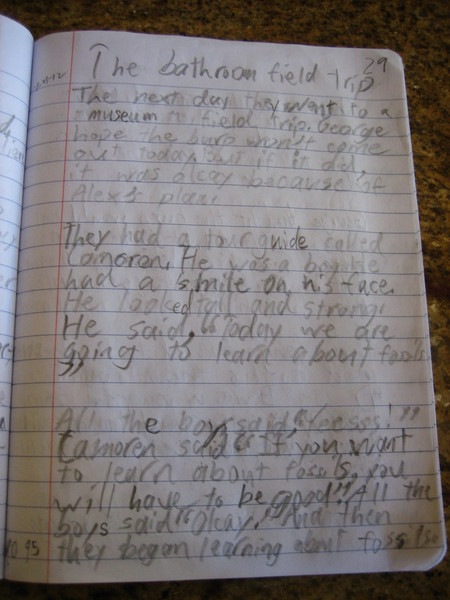 29
The bathroom field trip
The next day they went to a
museum field trip. George
hope the burp won't come
out today but if it did,
it was okay because of
Alex's plan.
They had a tour guide called
Camoren. He was a
had a smile on his face.
He looked tall and strong.
He said, "Today we are
going to learn about fossils
"
All the boys said, "Yeesss!"
Camoren said "If you want
to learn about fossils, you
will have to be good" All the
boys said "Okay." And then
they began learning about fossils.
95